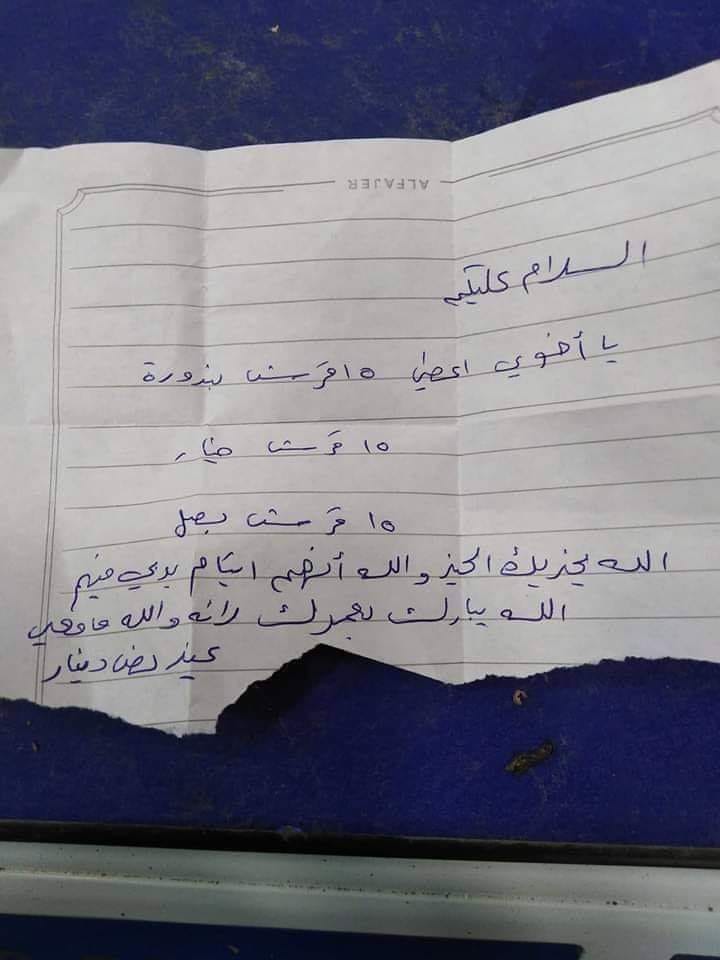 ALFAJER
السلام عليكم
يا أخوي اعطني ١٥ قرش بندورة
١٥ قرش خيار
١٥ قرش بصل
الله يجزيك الخير والله أنهم ايتام بدي
الله يبارك بعمرك لانه والله ما معي
غير نص دينار